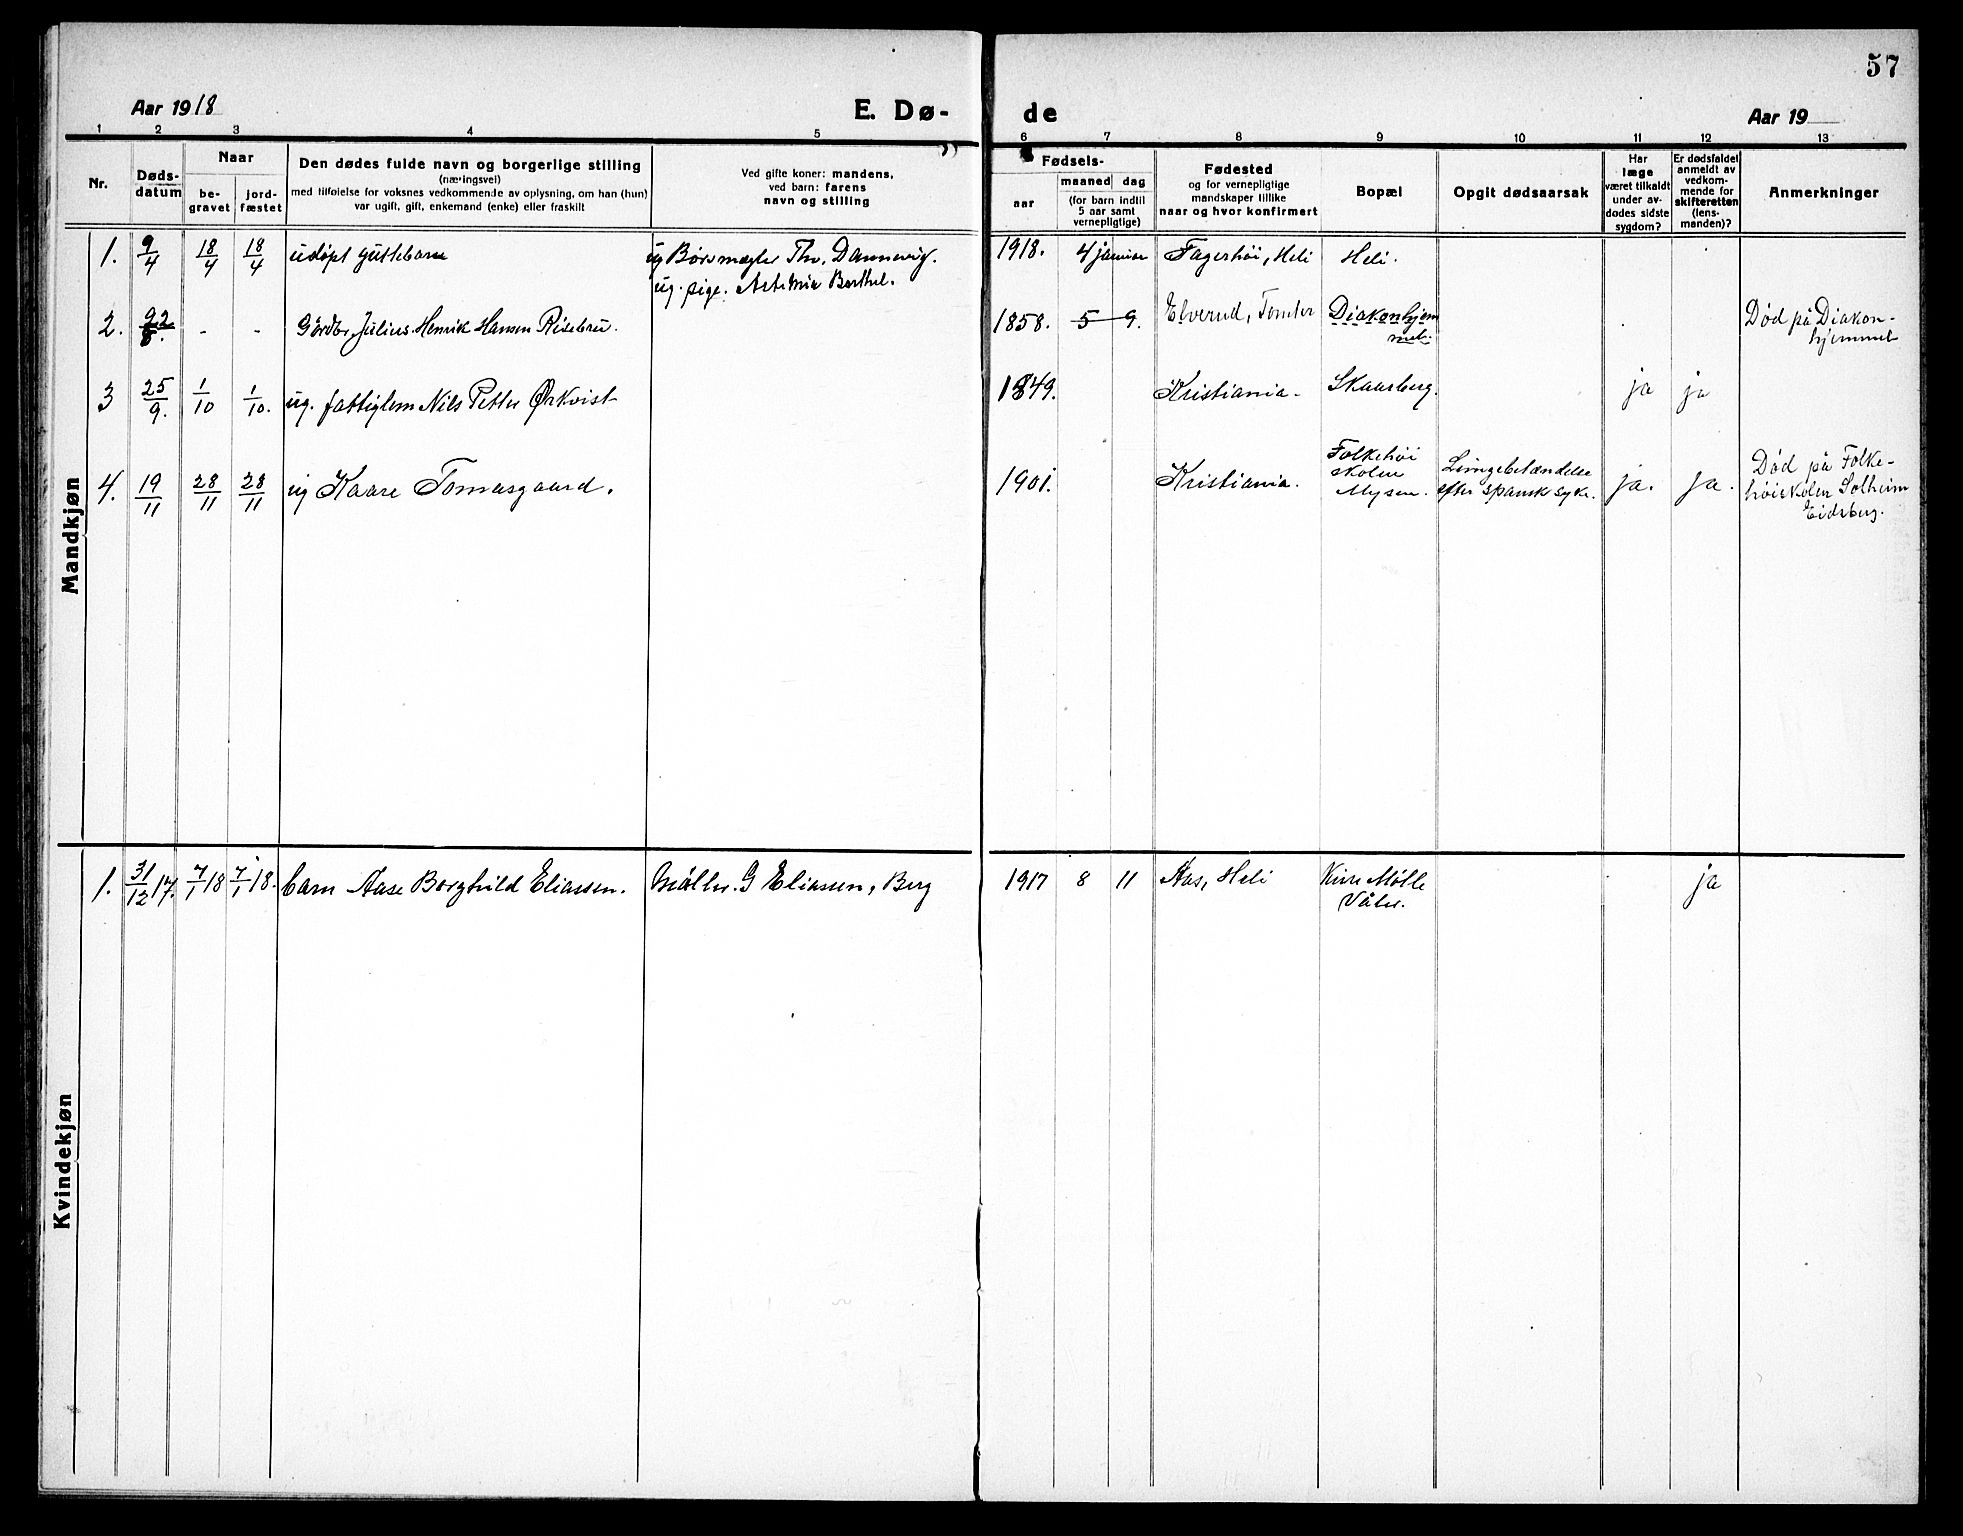 57
Aar 1918
E. Dø-
de
Aar 19
1 2 3 4 5 6 7 8 9 10 11 12 13
Nr.
Døds-
datum
Naar
be-
gravet
jord-
fæstet
Den dødes fulde navn og borgerlige stilling
(næringsvei)
med tilføielse for voksnes vedkommende av oplysning, om han (hun)
var ugift, gift, enkemand (enke) eller fraskilt
Ved gifte koner: mandens,
ved barn: farens
navn og stilling
Fødsels-
aar
maaned dag
(for barn indtil
5 aar samt
vernepligtige)
Fødested
og for vernepligtige
mandskaper tillike
naar og hvor konfirmert
Bopæl
Opgit dødsaarsak
Har
læge
været tilkaldt
under av-
dødes sidste
sygdom?
Er dødsfaldet
anmeldt av
vedkom-
mende for
skifteretten
(lens-
manden)?
Anmerkninger
Mandkjøn
1. 9/4 18/4 18/4 udøpt guttebarn ug Børsmægler Th. Dannevig. 1918. 4 januar Fagerhøi, Heli Heli.
ug. pige. Barthel.
2. 22/8. - - Gårdbr. Julius Henrik Hansen Risebru. 1858. 5 9. Elverud, Tomter Diakonhjem
met.
Død på Diakon-
hjemmet
3 25/9. 1/10 1/10. ug. fattiglem Nils Petter Ørkvist 1849. Kristiania. Skaarberg. ja ja
4. 19/11 28/11 28/11 ug Kaare Tomasgaard. 1901. Kristiania.
Folkehøi
skolen
Mysen.
Lungebetændelse
efter spansk syke.
ja. ja.
Død på Folke-
høiskolen Solheim
Eidsberg.
Kvindekjøn
1. 31/12 17. 7/1 18 7/1 18. barn Aase Borghild Eliassen. Møller. G Eliassen, Berg 1917 8 11 Aas, Heli Kure Mølle
Våler.
ja